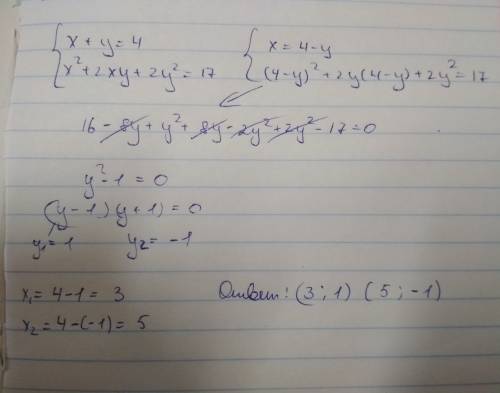 x + y = 4
x² + 2xy + 2y² = 17
x = 4 - y
(4-y)² + 2y(4-y) + 2y² = 17
16 - 8y + y² + 8y - 2y² + 2y² - 17 = 0
y² - 1 = 0
(y-1)(y+1) = 0
y₁ = 1 y₂ = -1
x₁ = 4 - 1 = 3
x₂ = 4 - (-1) = 5
Ответ: (3; 1) (5; -1)